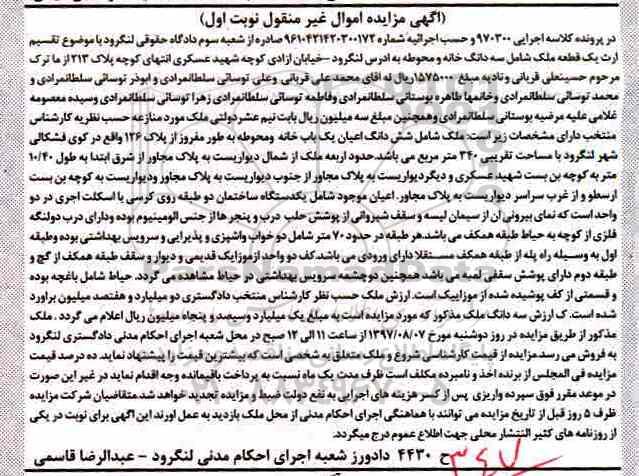 (آگهی مزایده اموال غیر منقول نوبت اول)
در پرونده کلاسه اجرایی ۹۷۰۳۰۰ و حسب اجرائیه شماره ۹۶۱۰۴۲۱۴۲۰۳۰۰۱۷۲ صادره از شعبه سوم دادگاه حقوقی لنگرود با موضوع تقسیم
ارث یک قطعه ملک شامل سه دانگ خانه و محوطه به ادرس لنگرود -خیابان ازادی کوچه شهید عسکری انتهای کوچه پلاک ۲۱۳ از ما ترک
مرحوم حسینعلی قربانی و تادیه مبلغ ۱۵۷۵۰۰۰ ریال له آقای محمد علی قربانی وعلی توسائی سلطانمرادی و ابوذر توسائی سلطانمرادی و
محمد توسائی سلطانمرادی وخانمها طاهره بوستانی سلطانمرادی وفاطمه توسائی سلطانمرادی زهرا توسائی سلطانمرادی وسیده معصومه
غلامی علیه مرضیه بوستانی سلطانمرادی وهمچنین مبلغ سه میلیون ریال بابت نیم عشر دولتی ملک مورد منازعه حسب نظریه کارشناس
منتخب دارای مشخصات زیر است: ملک شامل شش دانگ اعیان یک باب خانه ومحوطه به طور مفروز از پلاک ۱۳۶ واقع در کوی فشکالی
شهر لنگرود با مساحت تقریبی ۳۴۰ متر مربع می باشد.حدود اربعه ملک از شمال دیواریست به پلاک مجاور از شرق ابتدا به طول ۱۰/۴۰
متر به کوچه بن بست شهید عسکری و دیگر دیواریست به پلاک مجاور از جنوب دیواریست به پلاک مجاور ودیواریست به کوچه بن بست
ارسطو و از غرب سراسر دیواریست به پلاک مجاور. اعیان موجود شامل یکدستگاه ساختمان دو طبقه روی کرسی با اسکلت اجری در دو
واحد است که نمای بیرونی آن از سیمان لیسه و سقف شیروانی از پوشش حلب درب و پنجر ها از جنس الومینیوم بوده ودارای درب دولنگه
فلزی از کوچه به حیاط طبقه همکف می باشد.هر طبقه در حدود ۷۰ متر شامل دو خواب واشپزی و پذیرایی و سرویس بهداشتی بوده وطبقه
اول به وسیله راه پله از طبقه همکف مستقلا دارای ورودی می باشد.کف دو واحد ازموزائیک قدیمی و دیوار و سقف طبقه همکف از گچ و
طبقه دوم دارای پوشش سقفی لمبه می باشد همچنین دوچشمه سرویس بهداشتی در حیاط مشاهده می گردد. حیاط شامل باغچه بوده
و قسمتی از کف پوشیده شده از موزاییک است. ارزش ملک حسب نظر کارشناس منتخب دادگستری دو میلیارد و هفتصد میلیون براورد
شده است. ک ارزش سه دانگ ملک مذکور که مورد مزایده است به مبلغ یک میلیارد وسیصد و پنجاه میلیون ریال اعلام می گردد . ملک
مذکور از طریق مزایده در روز دوشنبه مورخ ۱۳۹۷/۰۸/۰۷ از ساعت ۱۱ الی ۱۲ صبح در محل شعبه اجرای احکام مدنی دادگستری لنگرود
به فروش می رسد.مزایده از قیمت کارشناسی شروع و ملک متعلق به شخصی است که بیشترین قیمت را پیشنهاد نماید. ده درصد قیمت
مزایده فی المجلس از برنده اخذ و نامبرده مکلف است ظرف مدت یک ماه نسبت به پرداخت باقیمانده وجه اقدام نماید در غیر این صورت
در موعد مقرر فوق سپرده واریزی پس از کسر هزینه های اجرایی به نفع دولت ضبط و مزایده تجدید خواهد شد.متقاضیان شرکت مزایده
ظرف ۵ روز قبل از تاریخ مزایده می توانند با هماهنگی اجرای احکام مدنی از محل ملک بازدید به عمل اورند این آگهی برای نوبت در یکی
از روزنامه های کثیر الانتشار محلی جهت اطلاع عموم درج میگردد.
ح ۴۴۳۰ دادورز شعبه اجرای احکام مدنی لنگرود - عبدالرضا قاسمی